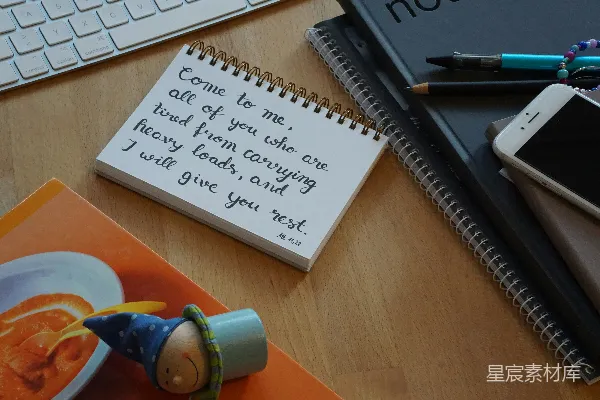 Come to me,
all of you who are
tired from carrying
heavy loads, and
I will give you rest.
no
星宸素材库